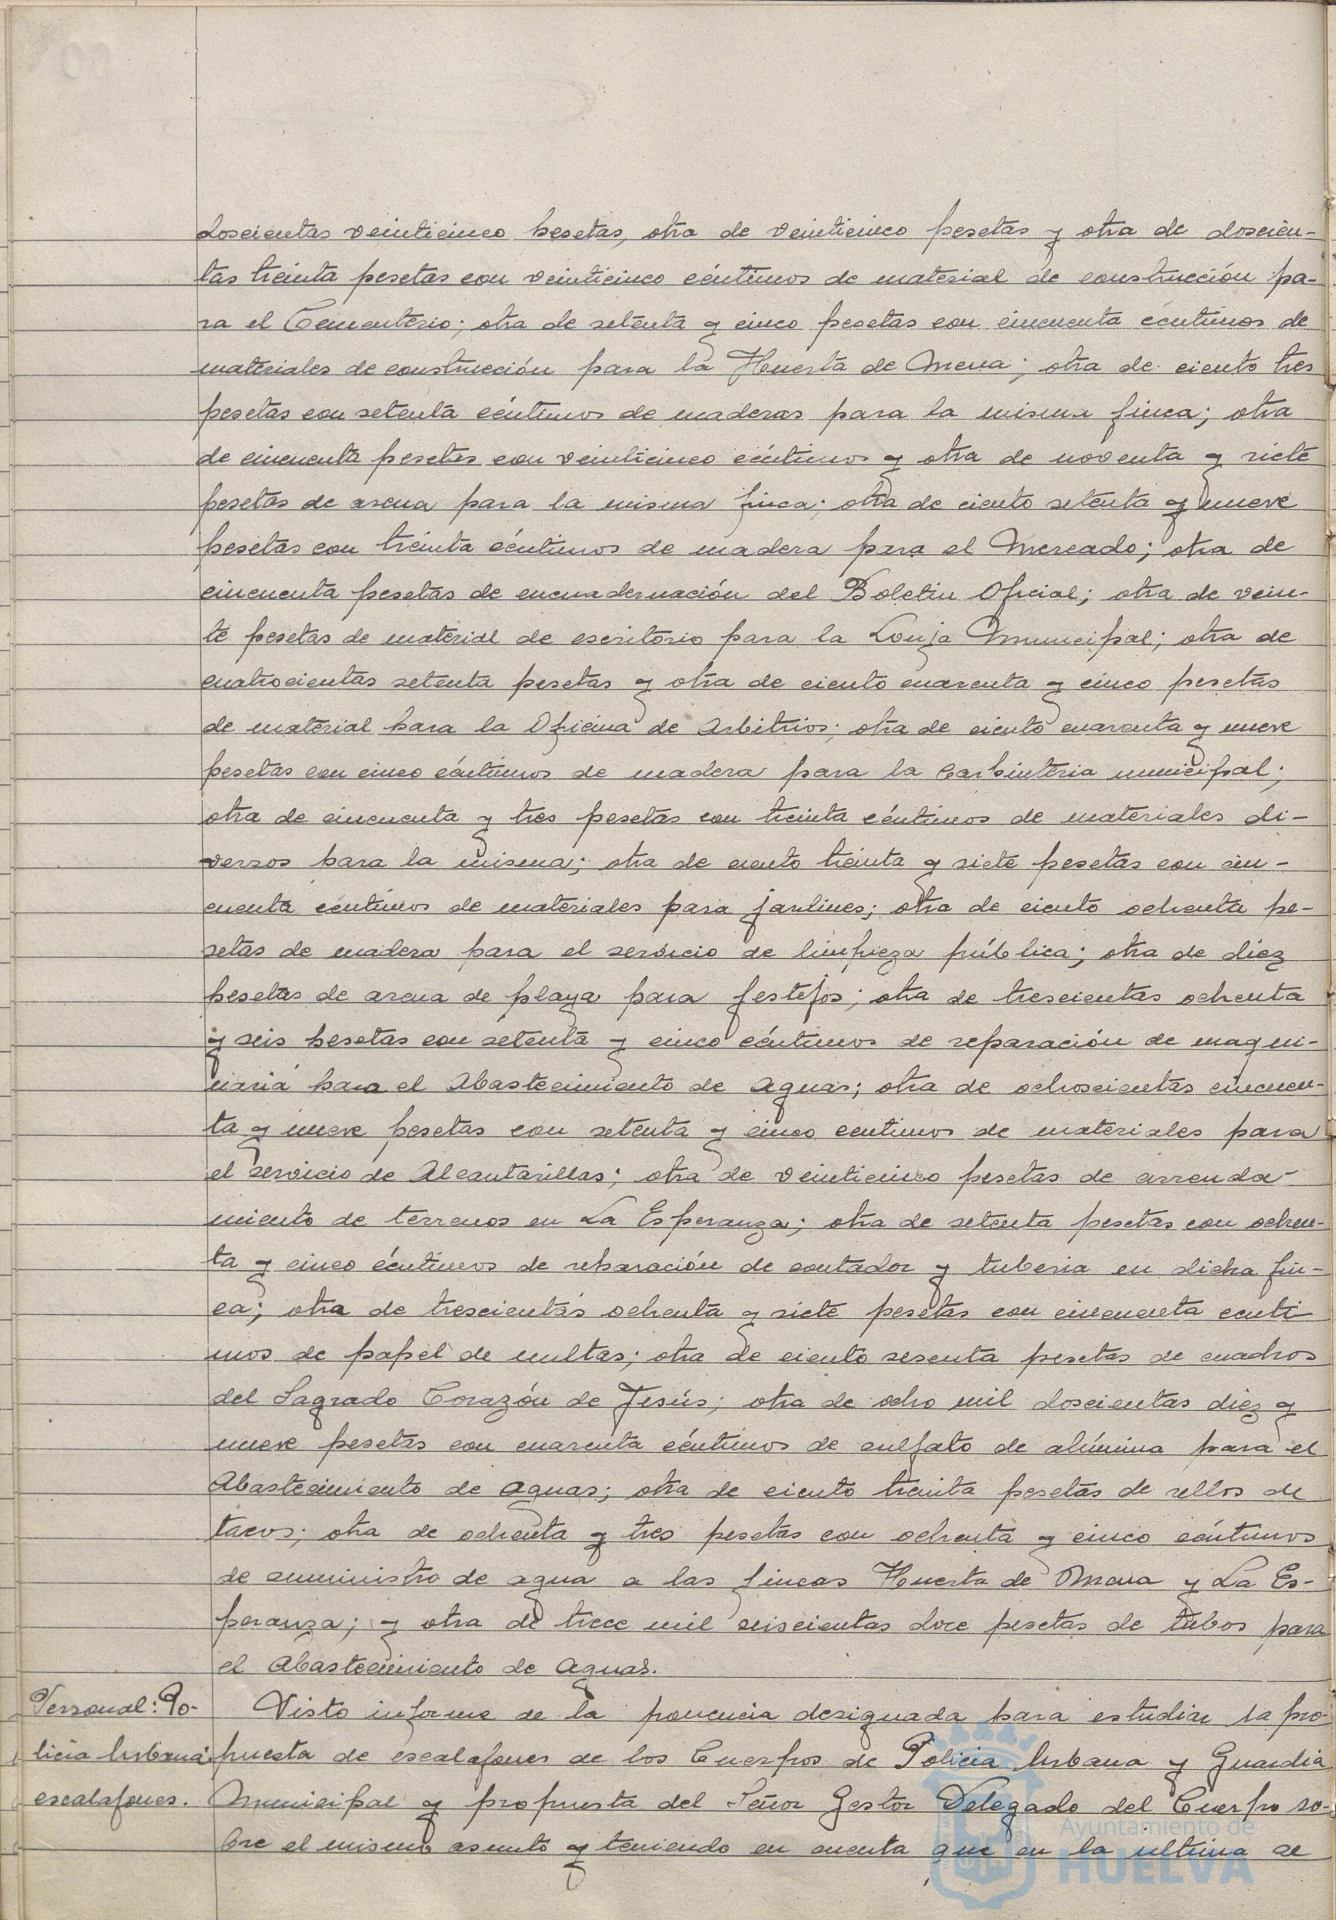 doscientas veinticinco pesetas, otra de veinticinco pesetas y otra de doscien-
tas treinta pesetas con veinticinco céntimos de material de construcción pa-
ra el Cementerio; otra de setenta y cinco pesetas con cincuenta céntimos de
materiales de construcción para la Huerta de Mena; otra de ciento tres
pesetas con setenta céntimos de maderas para la misma finca; otra
de cincuenta pesetas con veinticinco céntimos y otra de noventa y siete
pesetas de arena para la misma finca; otra de ciento setenta y nueve
pesetas con treinta céntimos de madera para el Mercado; otra de
cincuenta pesetas de encuadernación del Boletin Oficial; otra de vein-
te pesetas de material de escritorio para la Lonja Municipal; otra de
cuatrocientas setenta pesetas y otra de ciento cuarenta y cinco pesetas
de material para la Oficina de Arbitrios; otra de ciento cuarenta y nueve
pesetas con cinco céntimos de madera para la Carpinteria municipal;
otra de cincuenta y tres pesetas con treinta céntimos de materiales di-
versos para la misma; otra de ciento treinta y siete pesetas con cin-
cuenta céntimos de materiales para jardines; otra de ciento ochenta pe-
setas de madera para el servicio de limpieza pública; otra de diez
pesetas de arena de playa para festejos; otra de trescientas ochenta
y seis pesetas con setenta y cinco céntimos de reparación de maqui-
naria para el Abastecimiento de Aguas; otra de ochoscientas cincuen-
ta y nueve pesetas con setenta y cinco centimos de materiales para
el servicio de Alcantarillas; otra de veinticinco pesetas de arrenda-
miento de terrenos en La Esperanza; otra de setenta pesetas con ochen-
ta y cinco céntimos de reparación de contador y tuberia en dicha fin-
ca; otra de trescientas ochenta y siete pesetas con cincuenta centi
mos de papel de multas; otra de ciento sesenta pesetas de cuadros
del Sagrado Corazón de Jesús; otra de ocho mil doscientas diez y
nueve pesetas con cuarenta céntimos de sulfato de alúmina para el
Abastecimiento de Aguas; otra de ciento treinta pesetas de sellos de
tacos; otra de ochenta y tres pesetas con ochenta y cinco céntimos
de suministro de agua a las fincas Huerta de Mena y La Es-
peranza; y otra de trece mil seiscientas doce pesetas de tubos para
el Abastecimiento de Aguas.
Personal: Po-
licia Urbana
escalafones.
Visto informe de la ponencia designada para estudiar la pro-
puesta de escalafones de los Cuerpos de Policia Urbana y Guardia
Municipal y propuesta del Señor Gestor Delegado del Cuerpo so-
bre el mismo asunto y teniendo en cuenta que en la ultima se
Ayuntamiento de
HUELVA